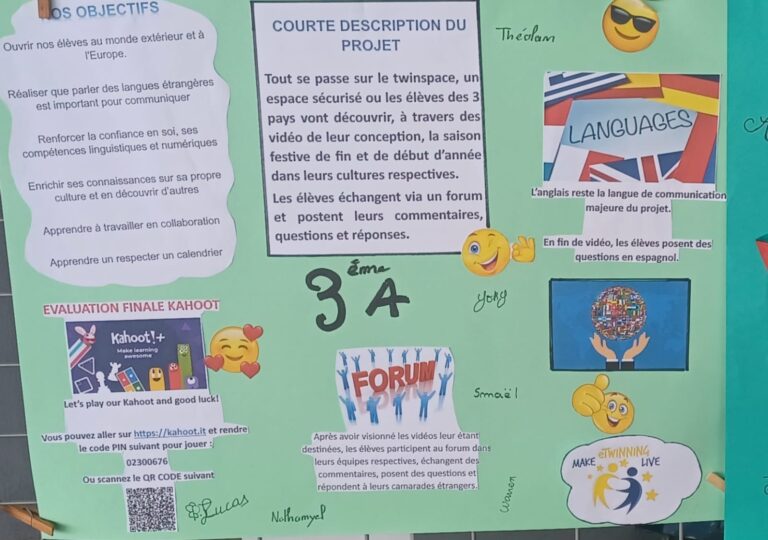 OS OBJECTIFS
Ouvrir nos élèves au monde extérieur et à
l'Europe.
Réaliser que parler des langues étrangères
est important pour communiquer
Renforcer la confiance en soi, ses
compétences linguistiques et numériques
Enrichir ses connaissances sur sa propre
culture et en découvrir d'autres
Apprendre à travailler en collaboration
Apprendre un respecter un calendrier
COURTE DESCRIPTION DU
PROJET
Tout se passe sur le twinspace, un
espace sécurisé ou les élèves des 3
pays vont découvrir, à travers des
vidéo de leur conception, la saison
festive de fin et de début d'année
dans leurs cultures respectives.
Les élèves échangent via un forum
et postent leurs commentaires,
questions et réponses.
Théolam
LANGUAGES
L'anglais reste la langue de communication
majeure du projet.
En fin de vidéo, les élèves posent des
questions en espagnol.
3 ème A
yong
EVALUATION FINALE KAHOOT
Kahoot!+
Make learning
awesome
Let's play our Kahoot and good luck!
Vous pouvez aller sur https://kahoot.it et rendre
le code PIN suivant pour jouer :
02300676
Ou scannez le QR CODE suivant
Lucas
FORUM
Après avoir visionné les vidéos leur étant
destinées, les élèves participent au forum dans
leurs équipes respectives, échangent des
commentaires, posent des questions et
répondent à leurs camarades étrangers.
Nathanyel
Smaël
MAKE eTWINNING LIVE